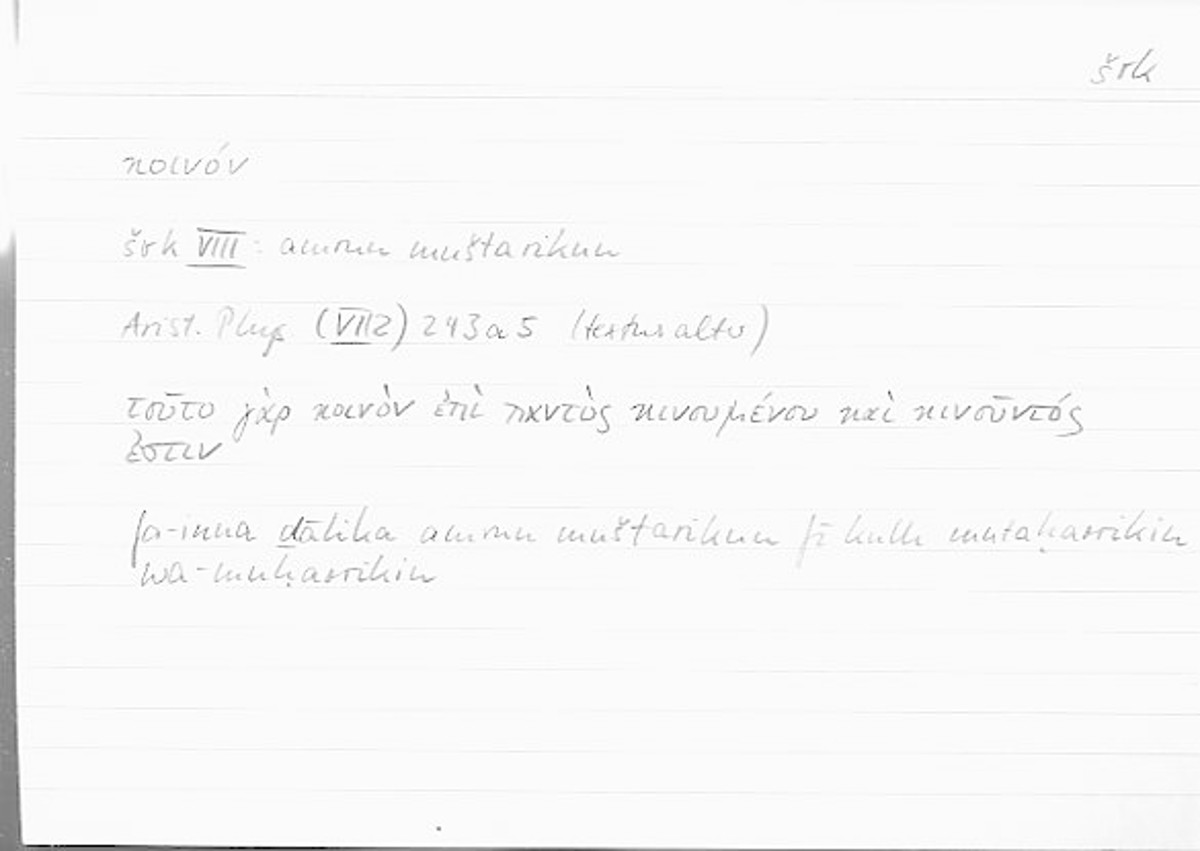 šrk
κοινόν
šrk VIII: amrun muštarikun
Arist. Phys. (VII 2) 243a5 (textus alter)
τοῦτο γὰρ κοινὸν ἐπὶ παντὸς κινουμένου καὶ κινοῦντός
ἐστιν
fa-inna ḏālika amrun muštarikun fī kulli mutaḥarrikin
wa-muḥarrikin